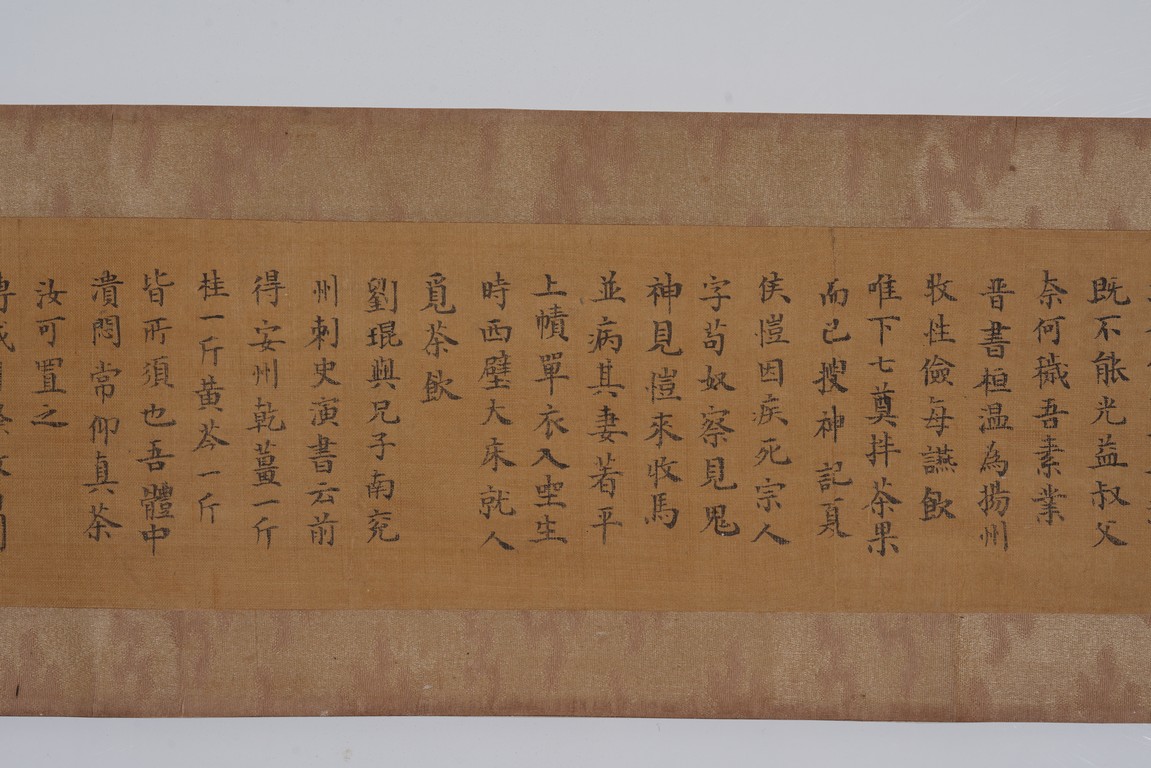 既不能光益叔父
奈何穢吾素業
晋書桓温為揚州
牧性儉每讌飲
唯下七奠拌茶果
而已搜神記夏
侯愷因疾死宗人
字苟奴察見鬼
神見愷來收馬
並病其妻著平
上幘單衣入坐生
時西壁大床就人
覓茶飲
劉琨與兄子南兖
州刺史演書云前
得安州乾薑一斤
桂一斤黄芩一斤
皆所須也吾體中
潰悶常仰真茶
汝可置之